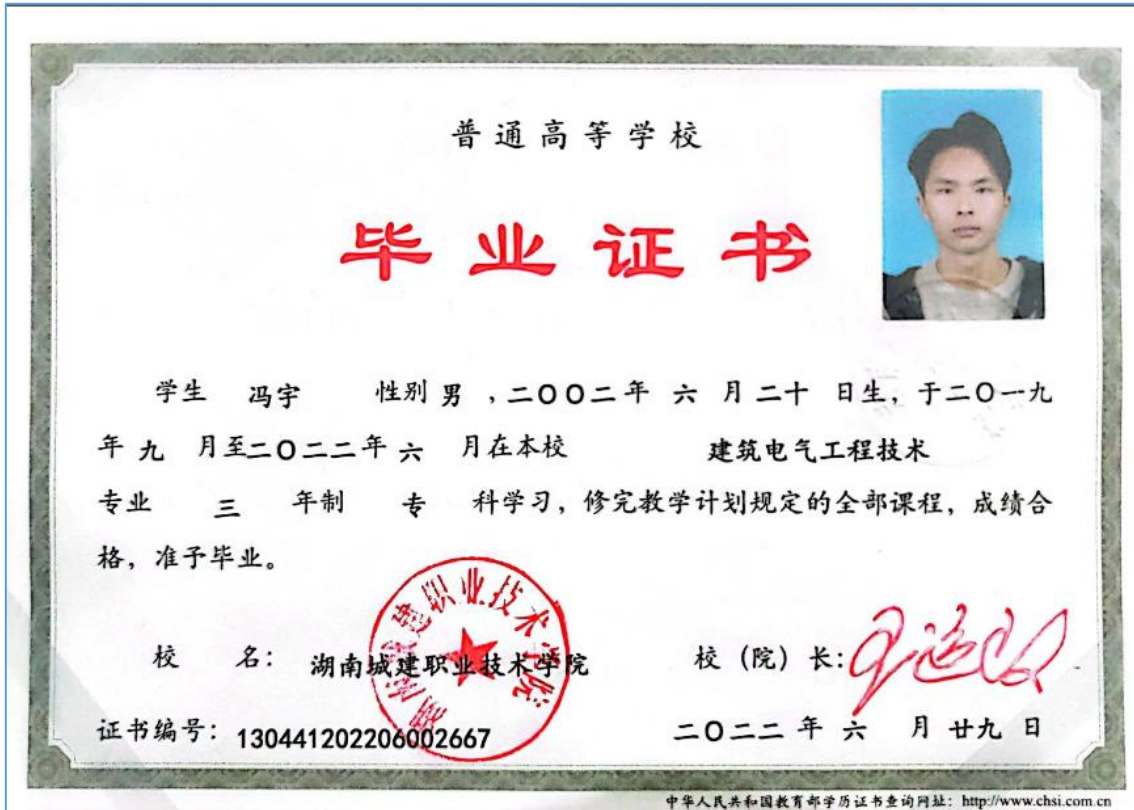 普通高等学校
毕业证书
学生 冯宇 性别 男 ，二〇〇二年 六 月 二十 日生，于二〇一九
年 九 月至二〇二二年 六 月在本校 建筑电气工程技术
专业 三 年制 专 科学习，修完教学计划规定的全部课程，成绩合
格，准予毕业。
湖南城建职业技术学院
校 名： 湖南城建职业技术学院 校（院）长：
证书编号：130441202206002667 二〇二二 年 六 月 廿九 日
中华人民共和国教育部学历证书查询网址：http://www.chsi.com.cn